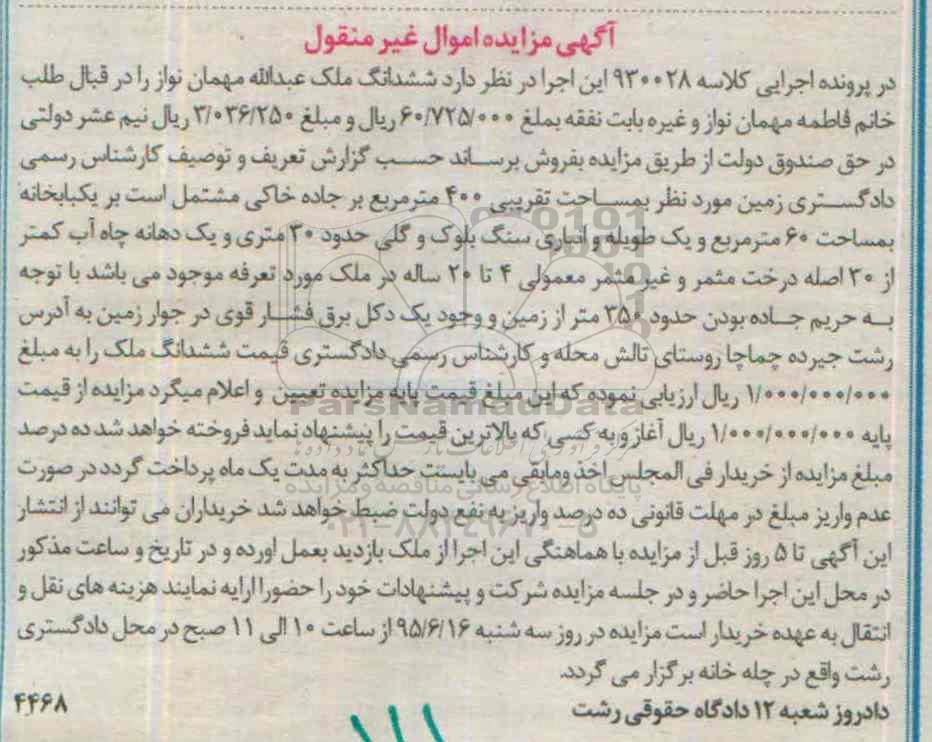 آگهی مزایده اموال غیر منقول
در پرونده اجرایی کلاسه ۹۳۰۰۲۸ این اجرا در نظر دارد ششدانگ ملک عبدالله مهمان نواز را در قبال طلب
خانم فاطمه مهمان نواز و غیره بابت نفقه بملغ ۶۰/۷۲۵/۰۰۰ ریال و مبلغ ۳/۰۳۶/۲۵۰ ریال نیم عشر دولتی
در حق صندوق دولت از طریق مزایده بفروش برساند حسب گزارش تعریف و توصیف کارشناس رسمی
دادگستری زمین مورد نظر بمساحت تقریبی ۴۰۰ مترمربع بر جاده خاکی مشتمل است بر یکبابخانه
بمساحت ۶۰ مترمربع و یک طویله و انباری سنگ بلوک و گلی حدود ۳۰ متری و یک دهانه چاه آب کمتر
از ۳۰ اصله درخت مثمر و غیر مثمر معمولی ۴ تا ۲۰ ساله در ملک مورد تعرفه موجود می باشد با توجه
به حریم جاده بودن حدود ۳۵۰ متر از زمین و وجود یک دکل برق فشار قوی در جوار زمین به آدرس
رشت جیرده چماچا روستای تالش محله و کارشناس رسمی دادگستری قیمت ششدانگ ملک را به مبلغ
۱/۰۰۰/۰۰۰/۰۰۰ ریال ارزیابی نموده که این مبلغ قیمت پایه مزایده تعیین و اعلام میگرد مزایده از قیمت
پایه ۱/۰۰۰/۰۰۰/۰۰۰ ریال آغاز و به کسی که بالاترین قیمت را پیشنهاد نماید فروخته خواهد شد ده درصد
مبلغ مزایده از خریدار فی المجلس اخذ ومابقی می بایست حداکثر به مدت یک ماه پرداخت گردد در صورت
عدم واریز مبلغ در مهلت قانونی ده درصد واریز به نفع دولت ضبط خواهد شد خریداران می توانند از انتشار
این آگهی تا ۵ روز قبل از مزایده با هماهنگی این اجرا از ملک بازدید بعمل اورده و در تاریخ و ساعت مذکور
در محل این اجرا حاضر و در جلسه مزایده شرکت و پیشنهادات خود را حضورا ارایه نمایند هزینه های نقل و
انتقال به عهده خریدار است مزایده در روز سه شنبه ۹۵/۶/۱۶ از ساعت ۱۰ الی ۱۱ صبح در محل دادگستری
رشت واقع در چله خانه برگزار می گردد.
دادروز شعبه ۱۲ دادگاه حقوقی رشت
۴۴۶۸
ParsNamadData
پایگاه اطلاع رسانی مناقصه و مزایده